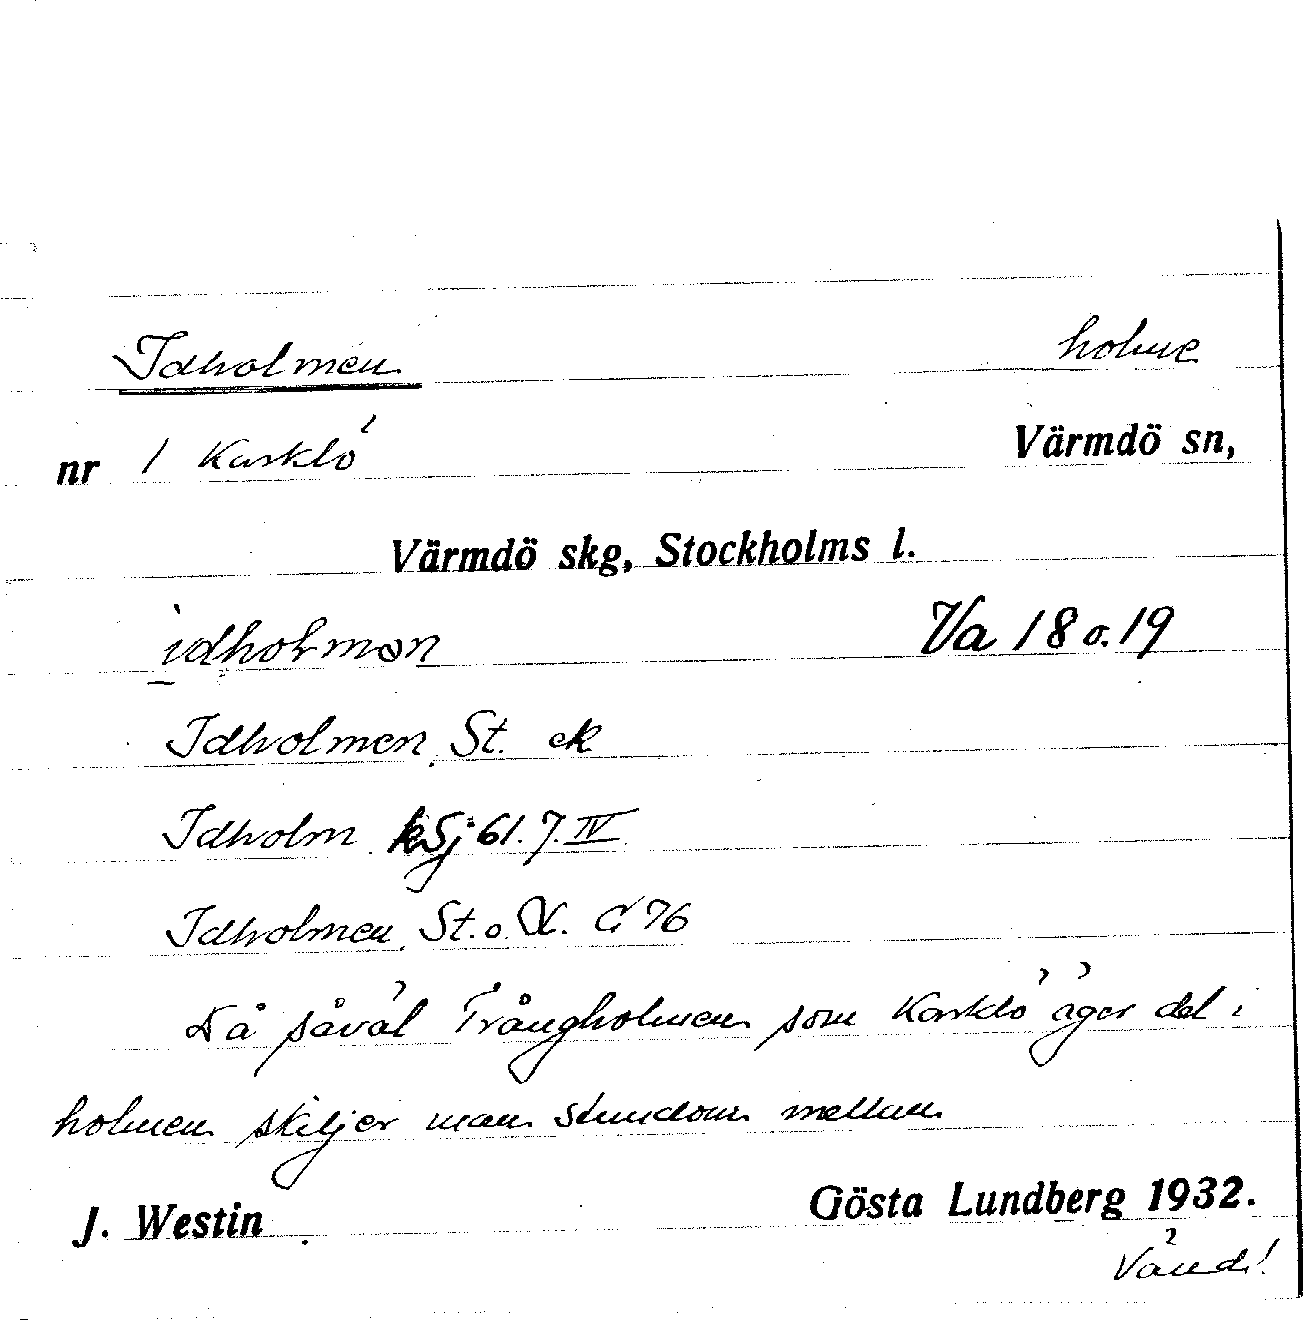 Idholmen holme
nr 1 Karklö Värmdö sn,
Värmdö skg, Stockholms l.
idholmən Va 18 o. 19
Idholmen St. ek
Idholm kSj 61. 7. IV
Idholmen St. o. C 76
Då såväl Trångholmen som Karklö äger del i
holmen skiljer man stundom mellan
J. Westin Gösta Lundberg 1932.
Vänd!